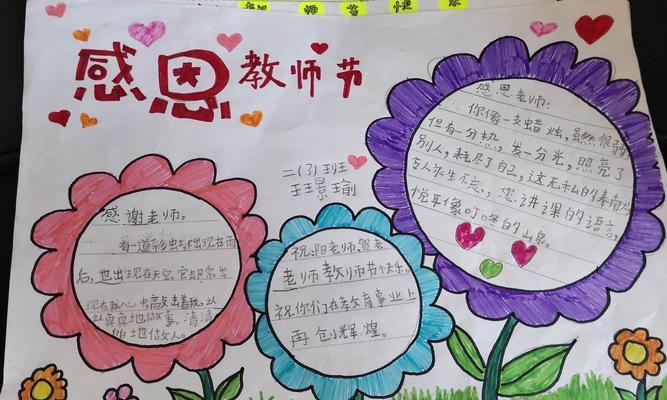 教师节快乐
感恩教师节
二(3)班
王景瑜
感谢老师:
有一道彩虹,不出现在雨
后,也出现在天空,它却常出
现在我心中,鞭策着我,认
认真真地做事,清清
白白地做人。
祝
老师教师节快乐。
祝你们在教育事业上
再创辉煌。
感恩老师:
你像一支蜡烛,虽然很弱
但有一分热,发一分光,照亮了
别人,耗尽了自己,这无私的奉献
令人永生不忘。您讲课的语言,
悦耳像叮咚的山泉。